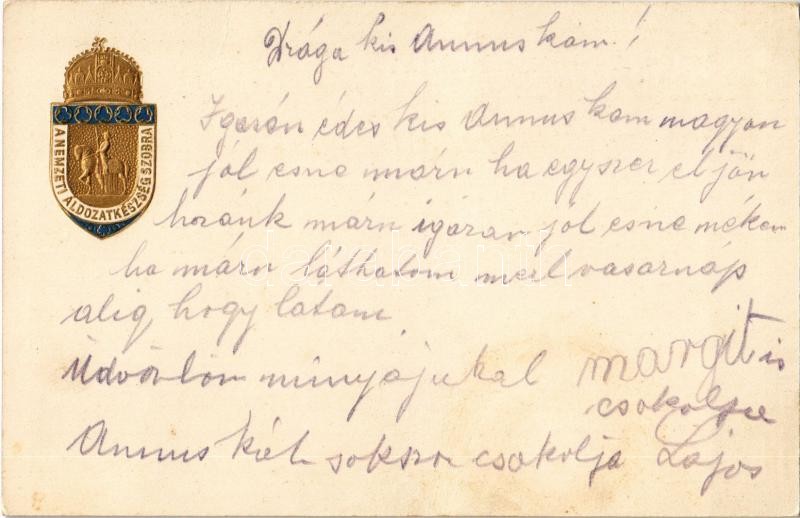 Drága kis Annuskám!
A NEMZETI ÁLDOZATKÉSZSÉG SZOBRA
Igarán édes kis Annuskam magyon
jól esne márn ha egyszer eljön
hozánk márn igaran jol esne mékem
ha márn láthatom mert vasarnap
alig, hogy latam
Üdvözlöm minyájukal margit is
csokolja
Annuskát sokszor csokolja Lajos